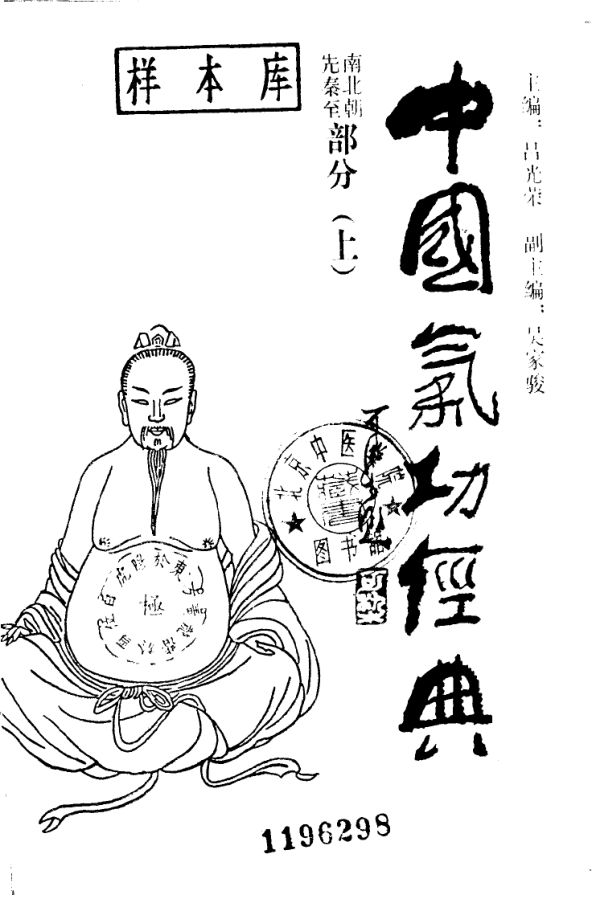 样本库
主编：吕光荣 副主编：吴家骏
中國氣功經典
先秦至
南北朝
部分（上）
北京中医
藏書
图书
極
1196298